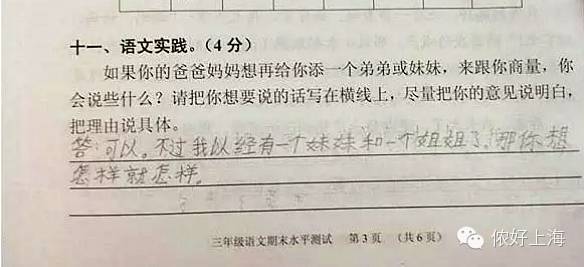 十一、语文实践。(4分)
如果你的爸爸妈妈想再给你添一个弟弟或妹妹，来跟你商量，你
会说些什么？请把你想要说的话写在横线上，尽量把你的意见说明白，
把理由说具体。
答:可以。不过我以经有一个妹妹和一个姐姐了,那你想
怎样就怎样。
三年级语文期末水平测试 第3页 (共6页)
侬好上海